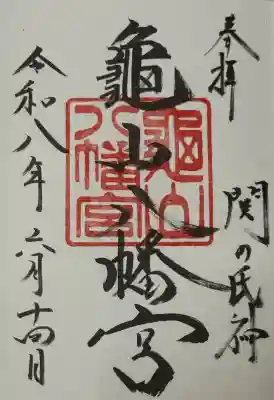 奉拝
関の氏神
龜山八幡宮
龜山八幡宮
令和八年六月十四日